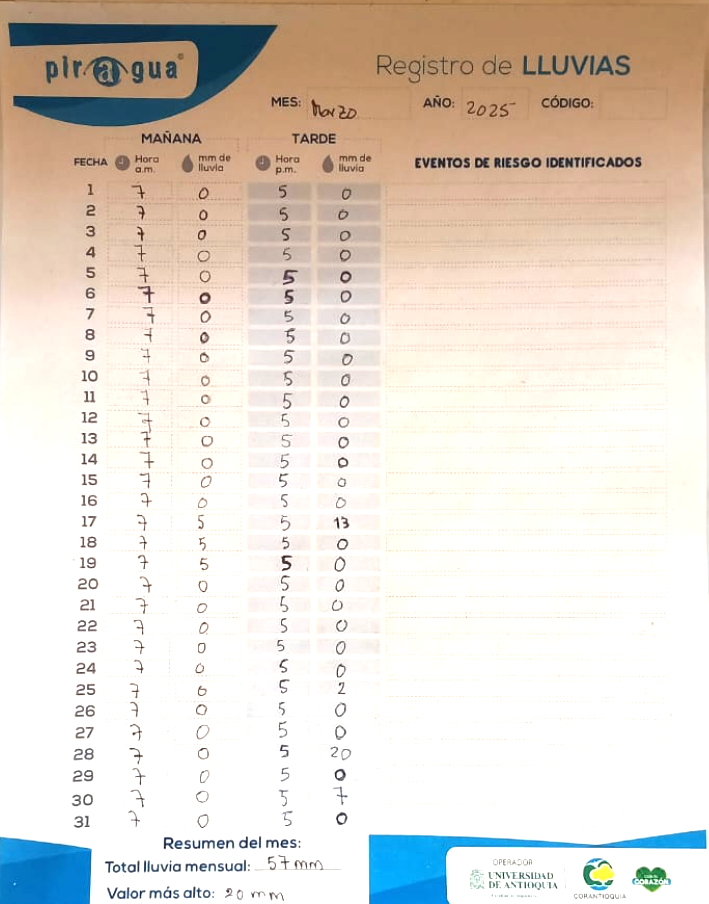 piragua®
Registro de LLUVIAS
MES: Marzo AÑO: 2025 CÓDIGO:
MAÑANA TARDE
FECHA Hora a.m. mm de lluvia Hora p.m. mm de lluvia EVENTOS DE RIESGO IDENTIFICADOS
1 7 0 5 0
2 7 0 5 0
3 7 0 5 0
4 7 0 5 0
5 7 0 5 0
6 7 0 5 0
7 7 0 5 0
8 7 0 5 0
9 7 0 5 0
10 7 0 5 0
11 7 0 5 0
12 7 0 5 0
13 7 0 5 0
14 7 0 5 0
15 7 0 5 0
16 7 0 5 0
17 7 5 5 13
18 7 5 5 0
19 7 5 5 0
20 7 0 5 0
21 7 0 5 0
22 7 0 5 0
23 7 0 5 0
24 7 0 5 0
25 7 0 5 2
26 7 0 5 0
27 7 0 5 0
28 7 0 5 20
29 7 0 5 0
30 7 0 5 7
31 7 0 5 0
Resumen del mes:
Total lluvia mensual: 57 mm
Valor más alto: 20 mm
OPERADOR
UNIVERSIDAD DE ANTIOQUIA
CORANTIOQUIA
CORAZÓN